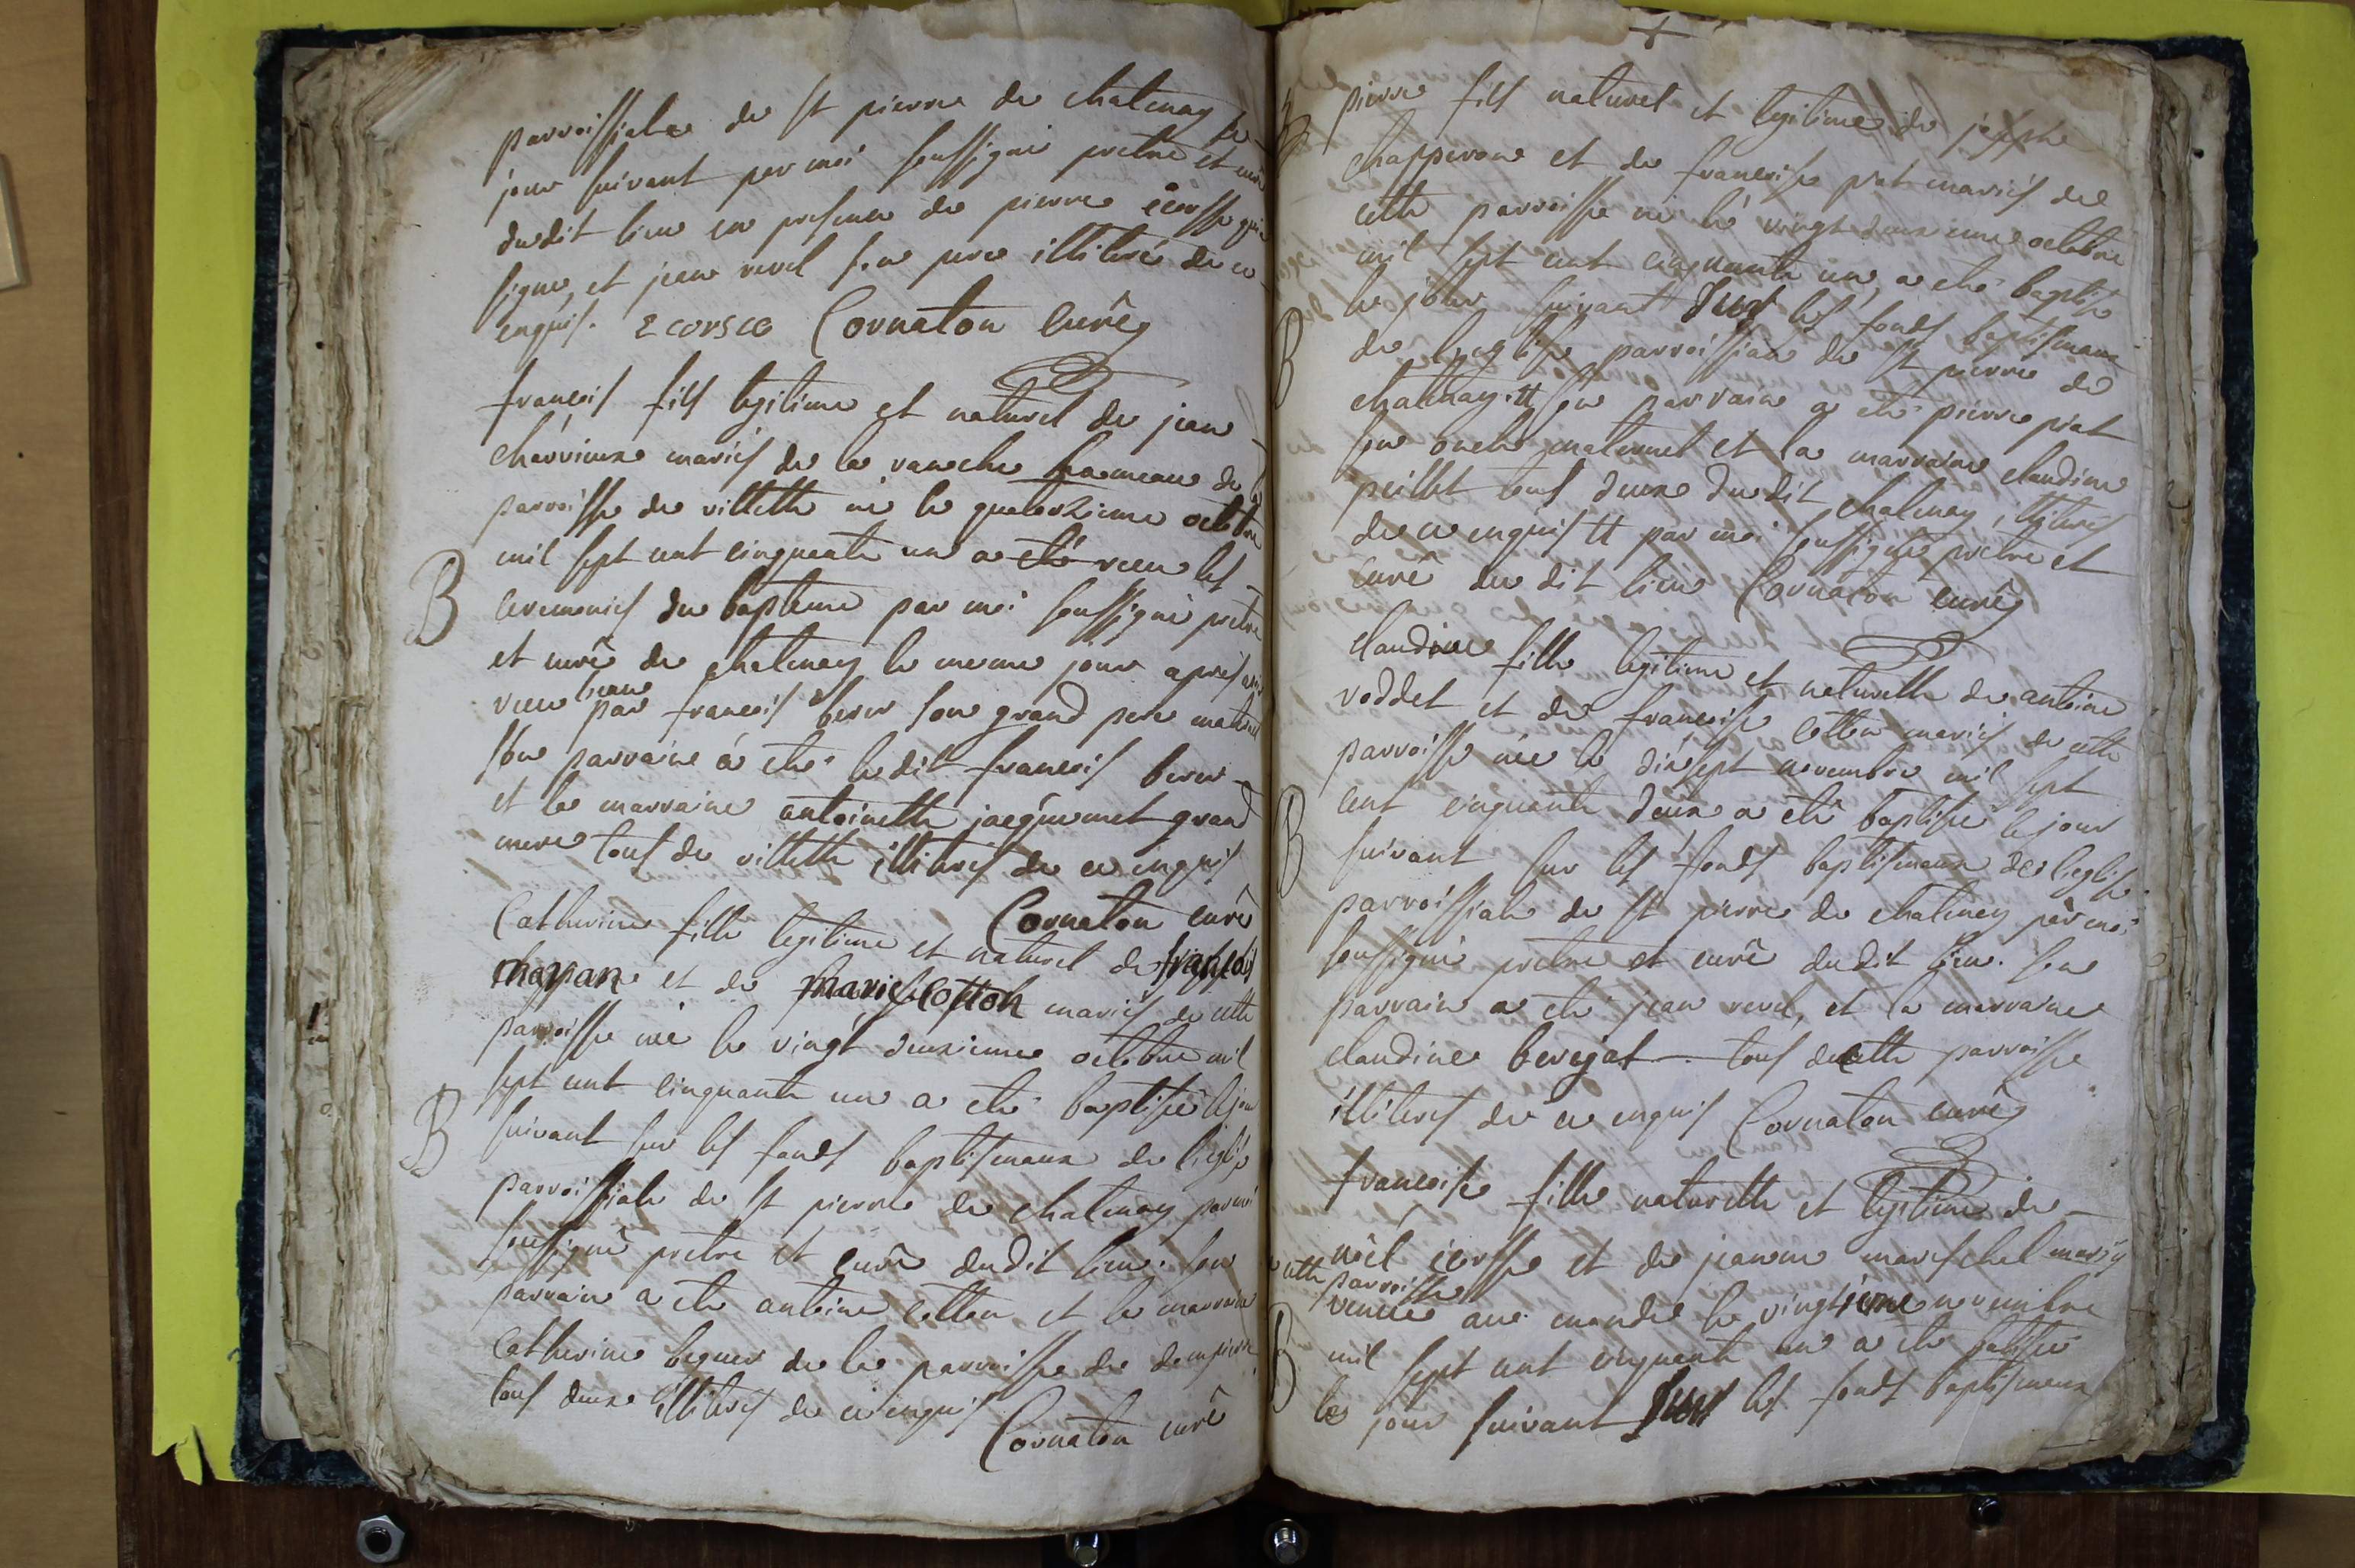 parroissiale de st pierre de chatenay le
jour suivant par moi soussigné pretre et curé
dudit lieu en presence de pierre écorsse qui a
signe, et jean revel son pere illiteré de ce
enquis. Ecorsce Cornaton curé
francois fils legitime et naturel de jean
charvieux mariés de la ranche hameau de la
parroisse de villette né le quatorzieme octobre
mil sept cent cinquante un a eté receu les
B
ceremonies du bapteme par moi soussigné pretre
et curé de chatenay le meme jour apres avoir
receu l'eau par francois
son grand pere maternel
son parrain á eté ledit francois
et la marraine antoinette jacquemet grand
mere tous de villette illiterés de ce enquis
Cornaton curé
Catherine fille legitime et naturel de françois
et de marie cotton mariés de cette
parroisse née le vingt deuxieme octobre mil
sept cent cinquante un a eté baptisée le jour
B
suivant sur les fonds baptismaux de l'eglise
parroissiale de st pierre de chatenay par moi
soussigné pretre et curé dudit lieu. son
parrain a eté antoine cotton et la marraine
Catherine beguet de la parroisse de dompierre
tous deux illiterés de ce enquis
Cornaton curé
pierre fils naturel et legitime de joseph
chapperon et de francoise prat mariés de
cette parroisse né le vingt deuxieme octobre
mil sept cent cinquante un, a eté baptisé
le jour suivant sur les fonds baptismaux
B
de l'eglise parroissiale de st pierre de
chatenay. # son parrain a eté pierre prat
son oncle maternel et la marraine claudine
peillet tous deux dudit chatenay, illiterés
de ce enquis # par moi soussigné pretre et
curé du dit lieu Cornaton curé
Claudine fille legitime et naturelle de antoine
roddet et de francoise cotton mariés de cette
parroisse née le dixsept novembre mil sept
cent cinquante deux a eté baptisée le jour
B
suivant sur les fonds baptismaux de l'eglise
parroissiale de st pierre de chatenay par moi
soussigné pretre et curé dudit lieu. son
parrain a eté jean revel, et la marraine
claudine berejat tous de cette parroisse
illiterés de ce enquis Cornaton curé
francoise fille naturelle et legitime de
noël écorsse et de jeanne mareschal mariés
de cette parroisse
venüe au monde le vingtième novembre
B
mil sept cent cinquante un a eté batisée
le jour suivant sur les fonds baptismaux